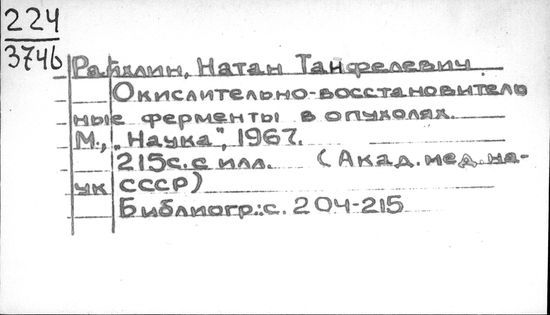 224
3746
Райхлин, Натан Танфелевич
Окислительно-восстановитель
ные ферменты в опухолях.
М., „Наука", 1967.
215с. с илл. (Акад. мед. на-
ук СССР)
Библиогр.: с. 204-215